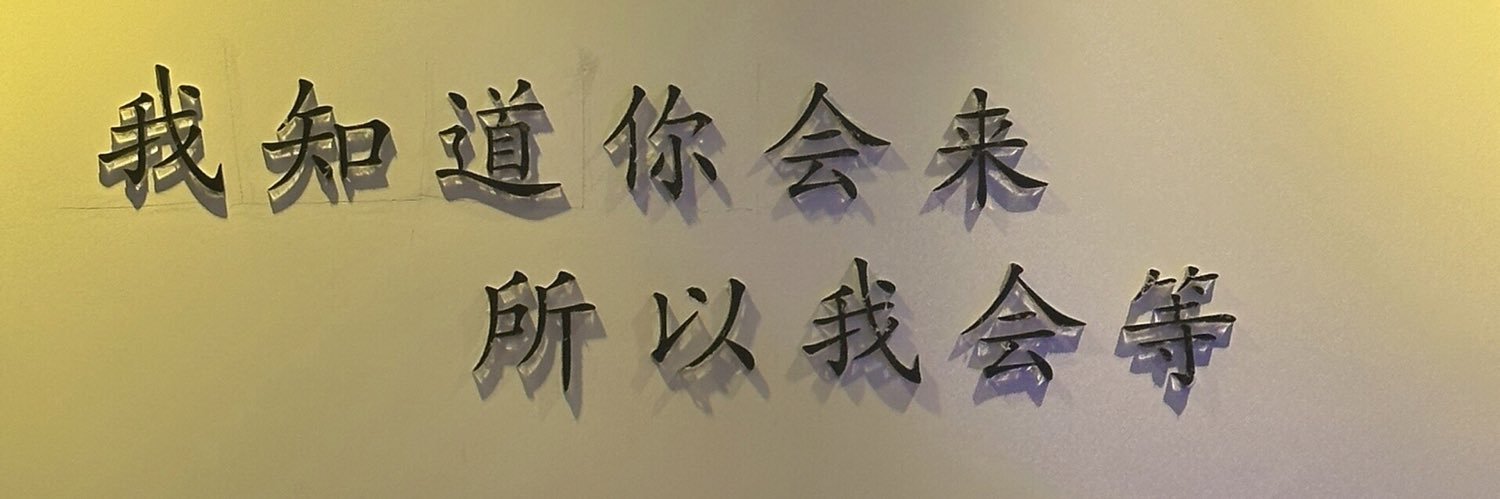 我知道你会来
所以我会等